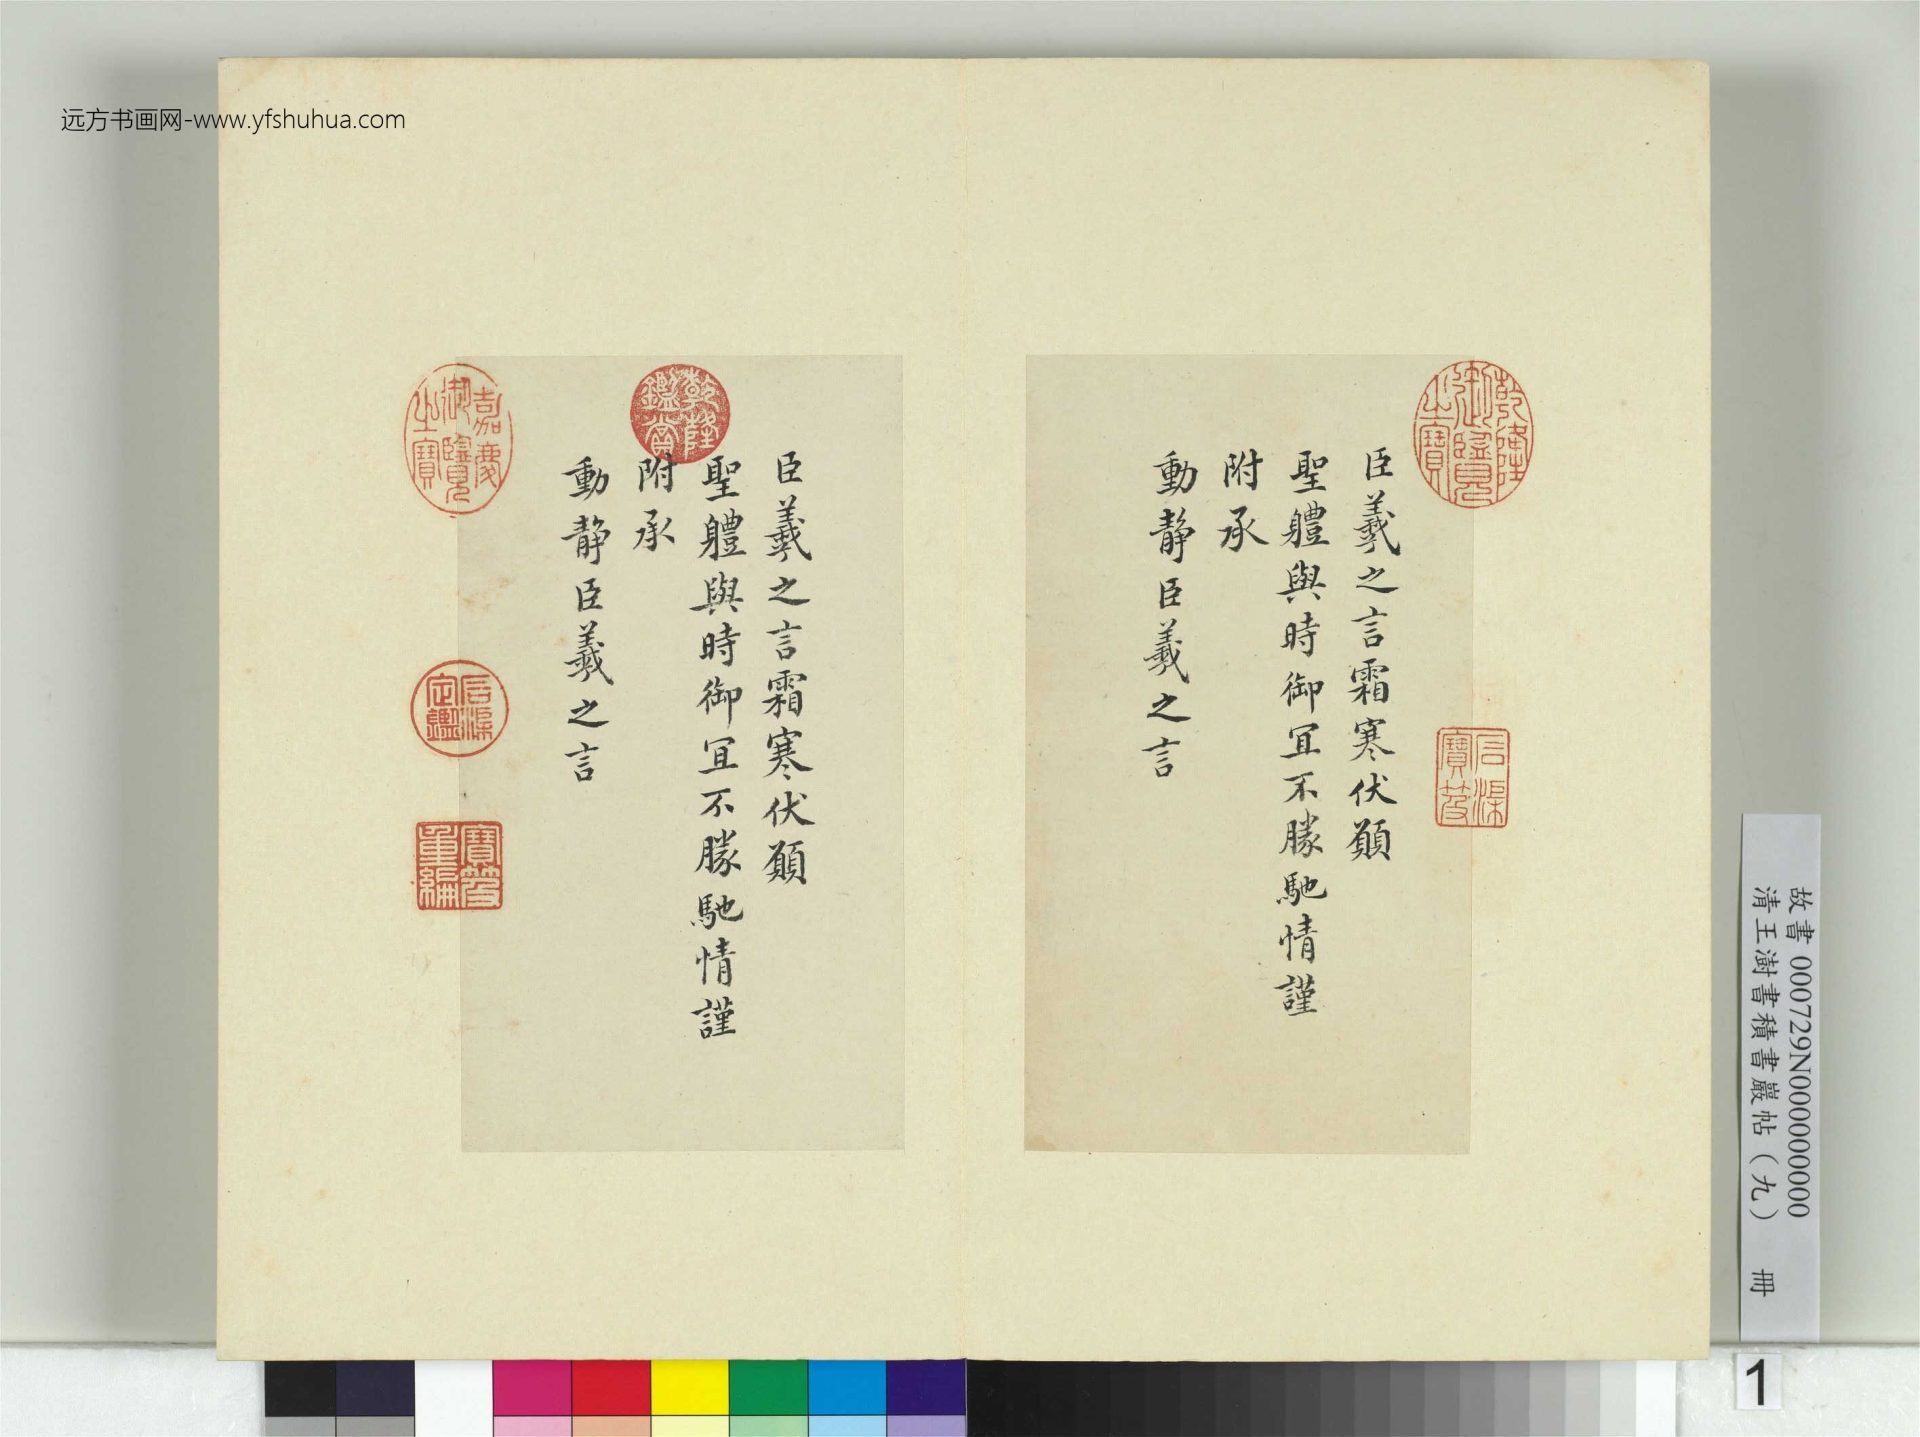 远方书画网-www.yfshuhua.com
乾隆御覽之寶
石渠寶笈
臣羲之言霜寒伏願
聖體與時御宜不勝馳情謹
附承
動靜臣羲之言
乾隆鑑賞
臣羲之言霜寒伏願
聖體與時御宜不勝馳情謹
附承
動靜臣羲之言
嘉慶御覽之寶
石渠定鑑
寶笈重編
故書 000729N000000000
清王澍書積書巖帖（九） 冊
1